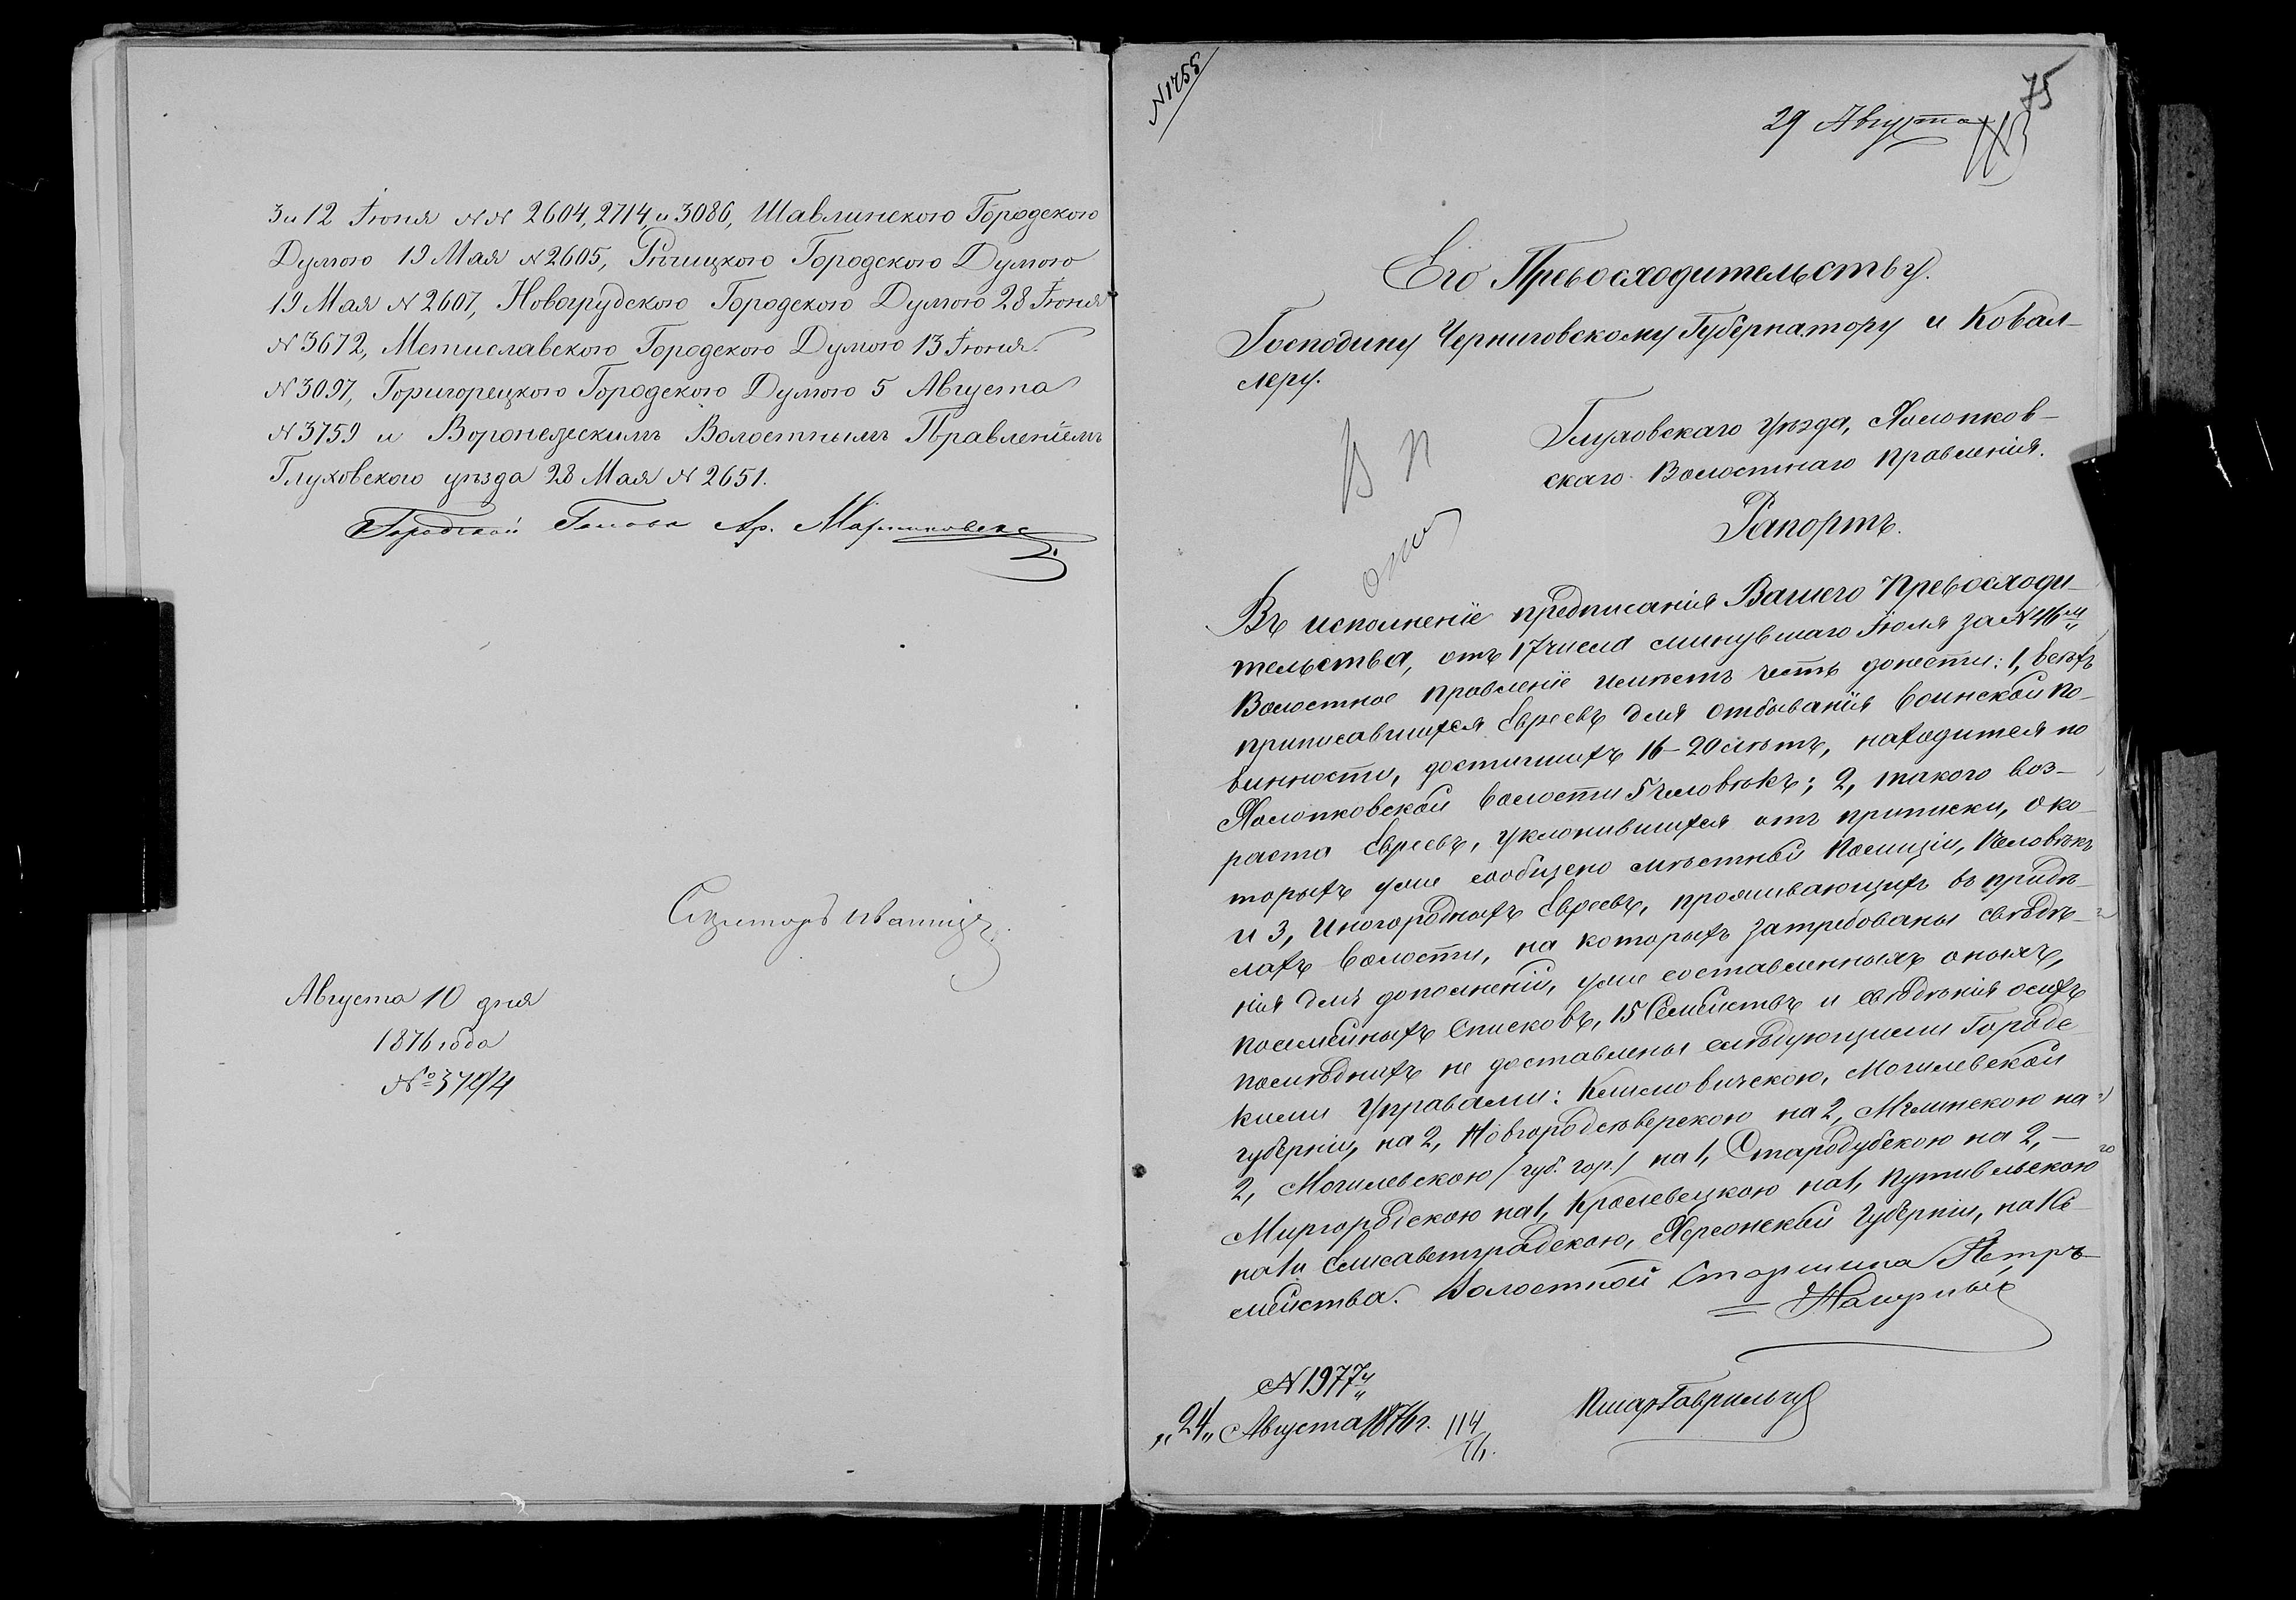 3 и 12 Іюня №№ 2604, 2714, и 3086, Шавлинскою Городскою
Думою 19 Мая № 2605, Рѣчицкою Городскою Думою
19 Мая № 2607, Новогрудскою Городскою Думою 28 Іюня
№ 3672, Мстиславскою Городскою Думою 13 Іюня
№ 3097, Горигорецкою Городскою Думою 5 Августа
№ 3759 и Воронежскимъ Волостнымъ Правленіемъ
Глуховского уѣзда 28 Мая № 2651.
Городской Голова Ар.
Августа 10 дня
1876 года
№ 3794
№ 1755
75
29 Августа
Его Превосходительству.
Господину Черниговскому Губернатору и Кавал-
леру.
Глуховскаго уѣзда, Холопков-
скаго Волостнаго Правленія.
Рапортъ.
Въ исполненіе предписанія Вашего Превосходи-
тельства, отъ 17 числа минувшаго Іюля за № 46м
Волостное Правленіе имѣетъ честь донести: 1, всѣхъ
приписавшихся Евреевъ для отбыванія воинской по-
винности, достигшихъ 16-20 лѣтъ, находится по
Холопковской волости 5 человѣкъ; 2, такого воз-
раста Евреевъ, уклонившихся отъ приписки, о ко-
торыхъ уже сообщено мѣстной Полиціи, 1 человѣкъ
и 3, Иногородныхъ Евреевъ, проживающихъ въ предѣ-
лахъ волости, на которыхъ затребованы свѣдѣ-
нія для дополненій, уже составленныхъ оныхъ,
посемейныхъ списковъ, 15 Семействъ и свѣдѣнія о сихъ
послѣднихъ не доставлены слѣдующими Городс
кими Управами: Климовичскою, Могилевской
губерніи, на 2, Новгородсѣверскою на 2, Мглинскою на
2, Могилевскою /губ. гор./ на 1, Стародубскою на 2,—
Миргородскою на 1, Кролевецкою на 1, Путивльскою
на 1 и Елисаветградскою, Херсонской Губерніи, на 1 Се
мейства. Волостной Старшина Петръ
№ 1977й
„24„ Августа 1876 г. 114